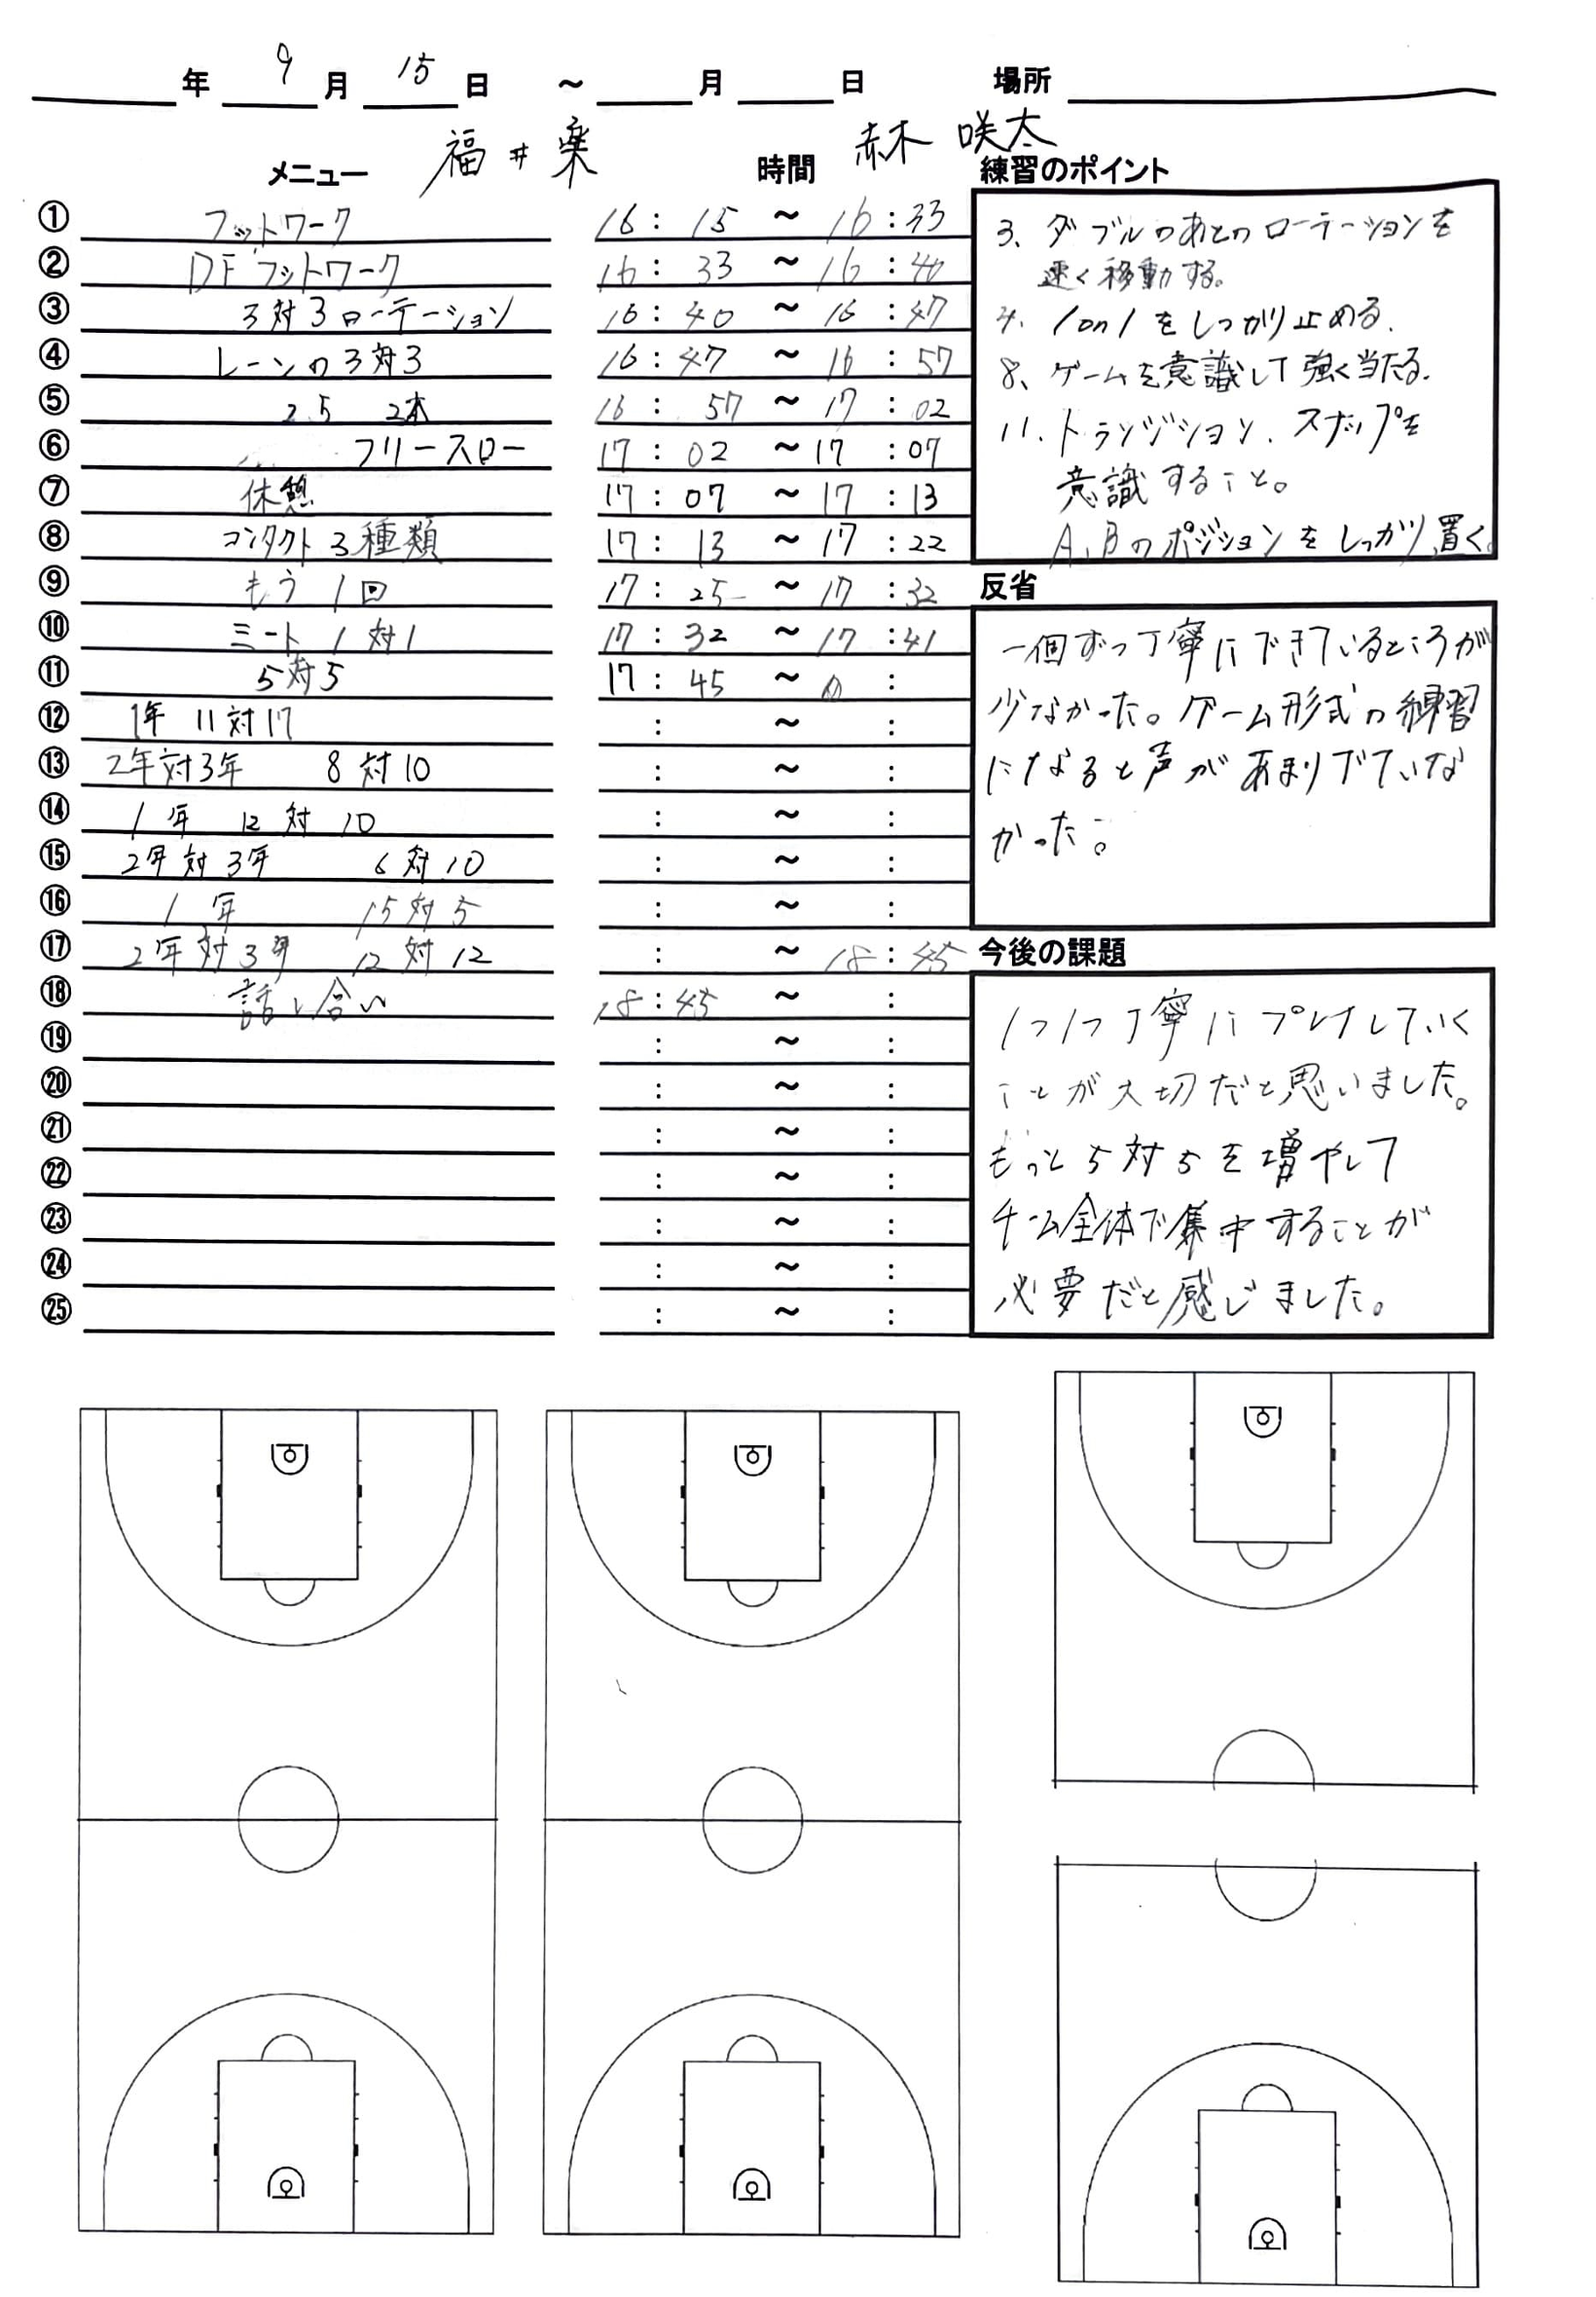 年 9 月 15 日 ～ 月 日 場所
福井 楽 赤木 咲太
メニュー 時間 練習のポイント
① フットワーク 16:15 ～ 16:33
② DFフットワーク 16:33 ～ 16:40
③ 3対3ローテーション 16:40 ～ 16:47
④ レーンの3対3 16:47 ～ 16:57
⑤ 2.5 2本 16:57 ～ 17:02
⑥ フリースロー 17:02 ～ 17:07
⑦ 休憩 17:07 ～ 17:13
⑧ コンタクト3種類 17:13 ～ 17:22
⑨ もう1回 17:25 ～ 17:32
⑩ ミート1対1 17:32 ～ 17:41
⑪ 5対5 17:45 ～ :
⑫ 1年 11対17 : ～ :
⑬ 2年対3年 8対10 : ～ :
⑭ 1年 12対10 : ～ :
⑮ 2年対3年 6対10 : ～ :
⑯ 1年 15対5 : ～ :
⑰ 2年対3年 12対12 : ～ 18:45
⑱ 話し合い 18:45 ～ :
⑲ : ～ :
⑳ : ～ :
㉑ : ～ :
㉒ : ～ :
㉓ : ～ :
㉔ : ～ :
㉕ : ～ :
3、ダブルのあとのローテーションを
速く移動する。
4、1on1をしっかり止める.
8、ゲームを意識して強く当たる.
11.トランジション、スナップを
意識すること。
A、Bのポジションをしっかり置く。
反省
一個ずつ丁寧にできているところが
少なかった。ゲーム形式の練習
になると声があまりでていな
かった。
今後の課題
1つ1つ丁寧にプレイしていく
ことが大切だと思いました。
もっと5対5を増やして
チーム全体で集中することが
必要だと感じました。